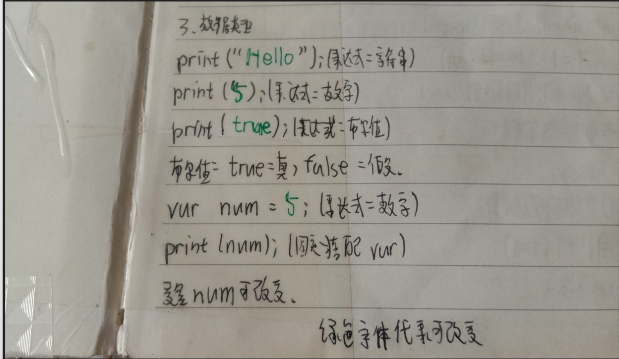 3、数据类型
print("Hello");(表达式=字符串)
print(5);(表达式=数字)
print(true);(表达式=布尔值)
布尔值=true=真,false=假、
var num = 5;(表达式=数字)
print(num);(固定搭配 var)
变量num可改变、
绿色字体代表可改变